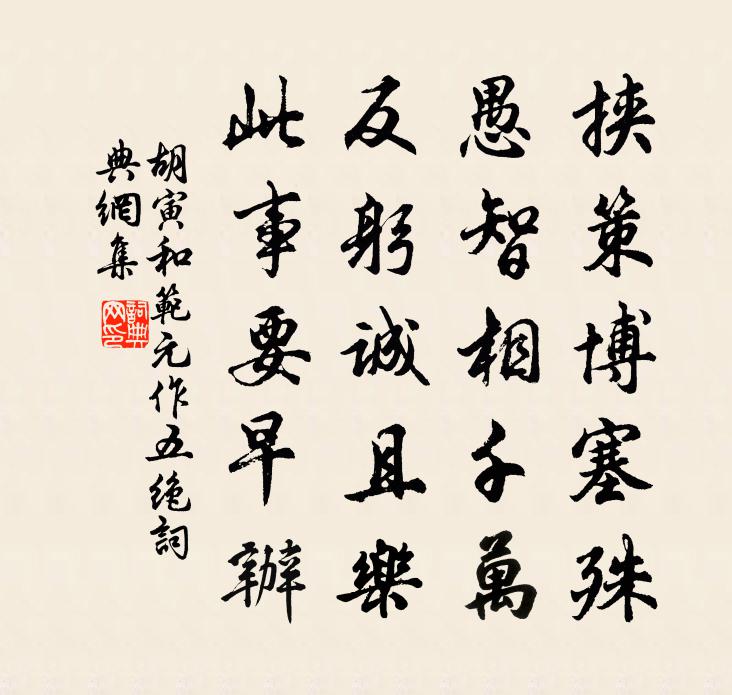 挾策博塞殊
愚智相千萬
反躬誠且樂
此事要早辦
胡寅和範元作五絶詞
典網集
詞典網印